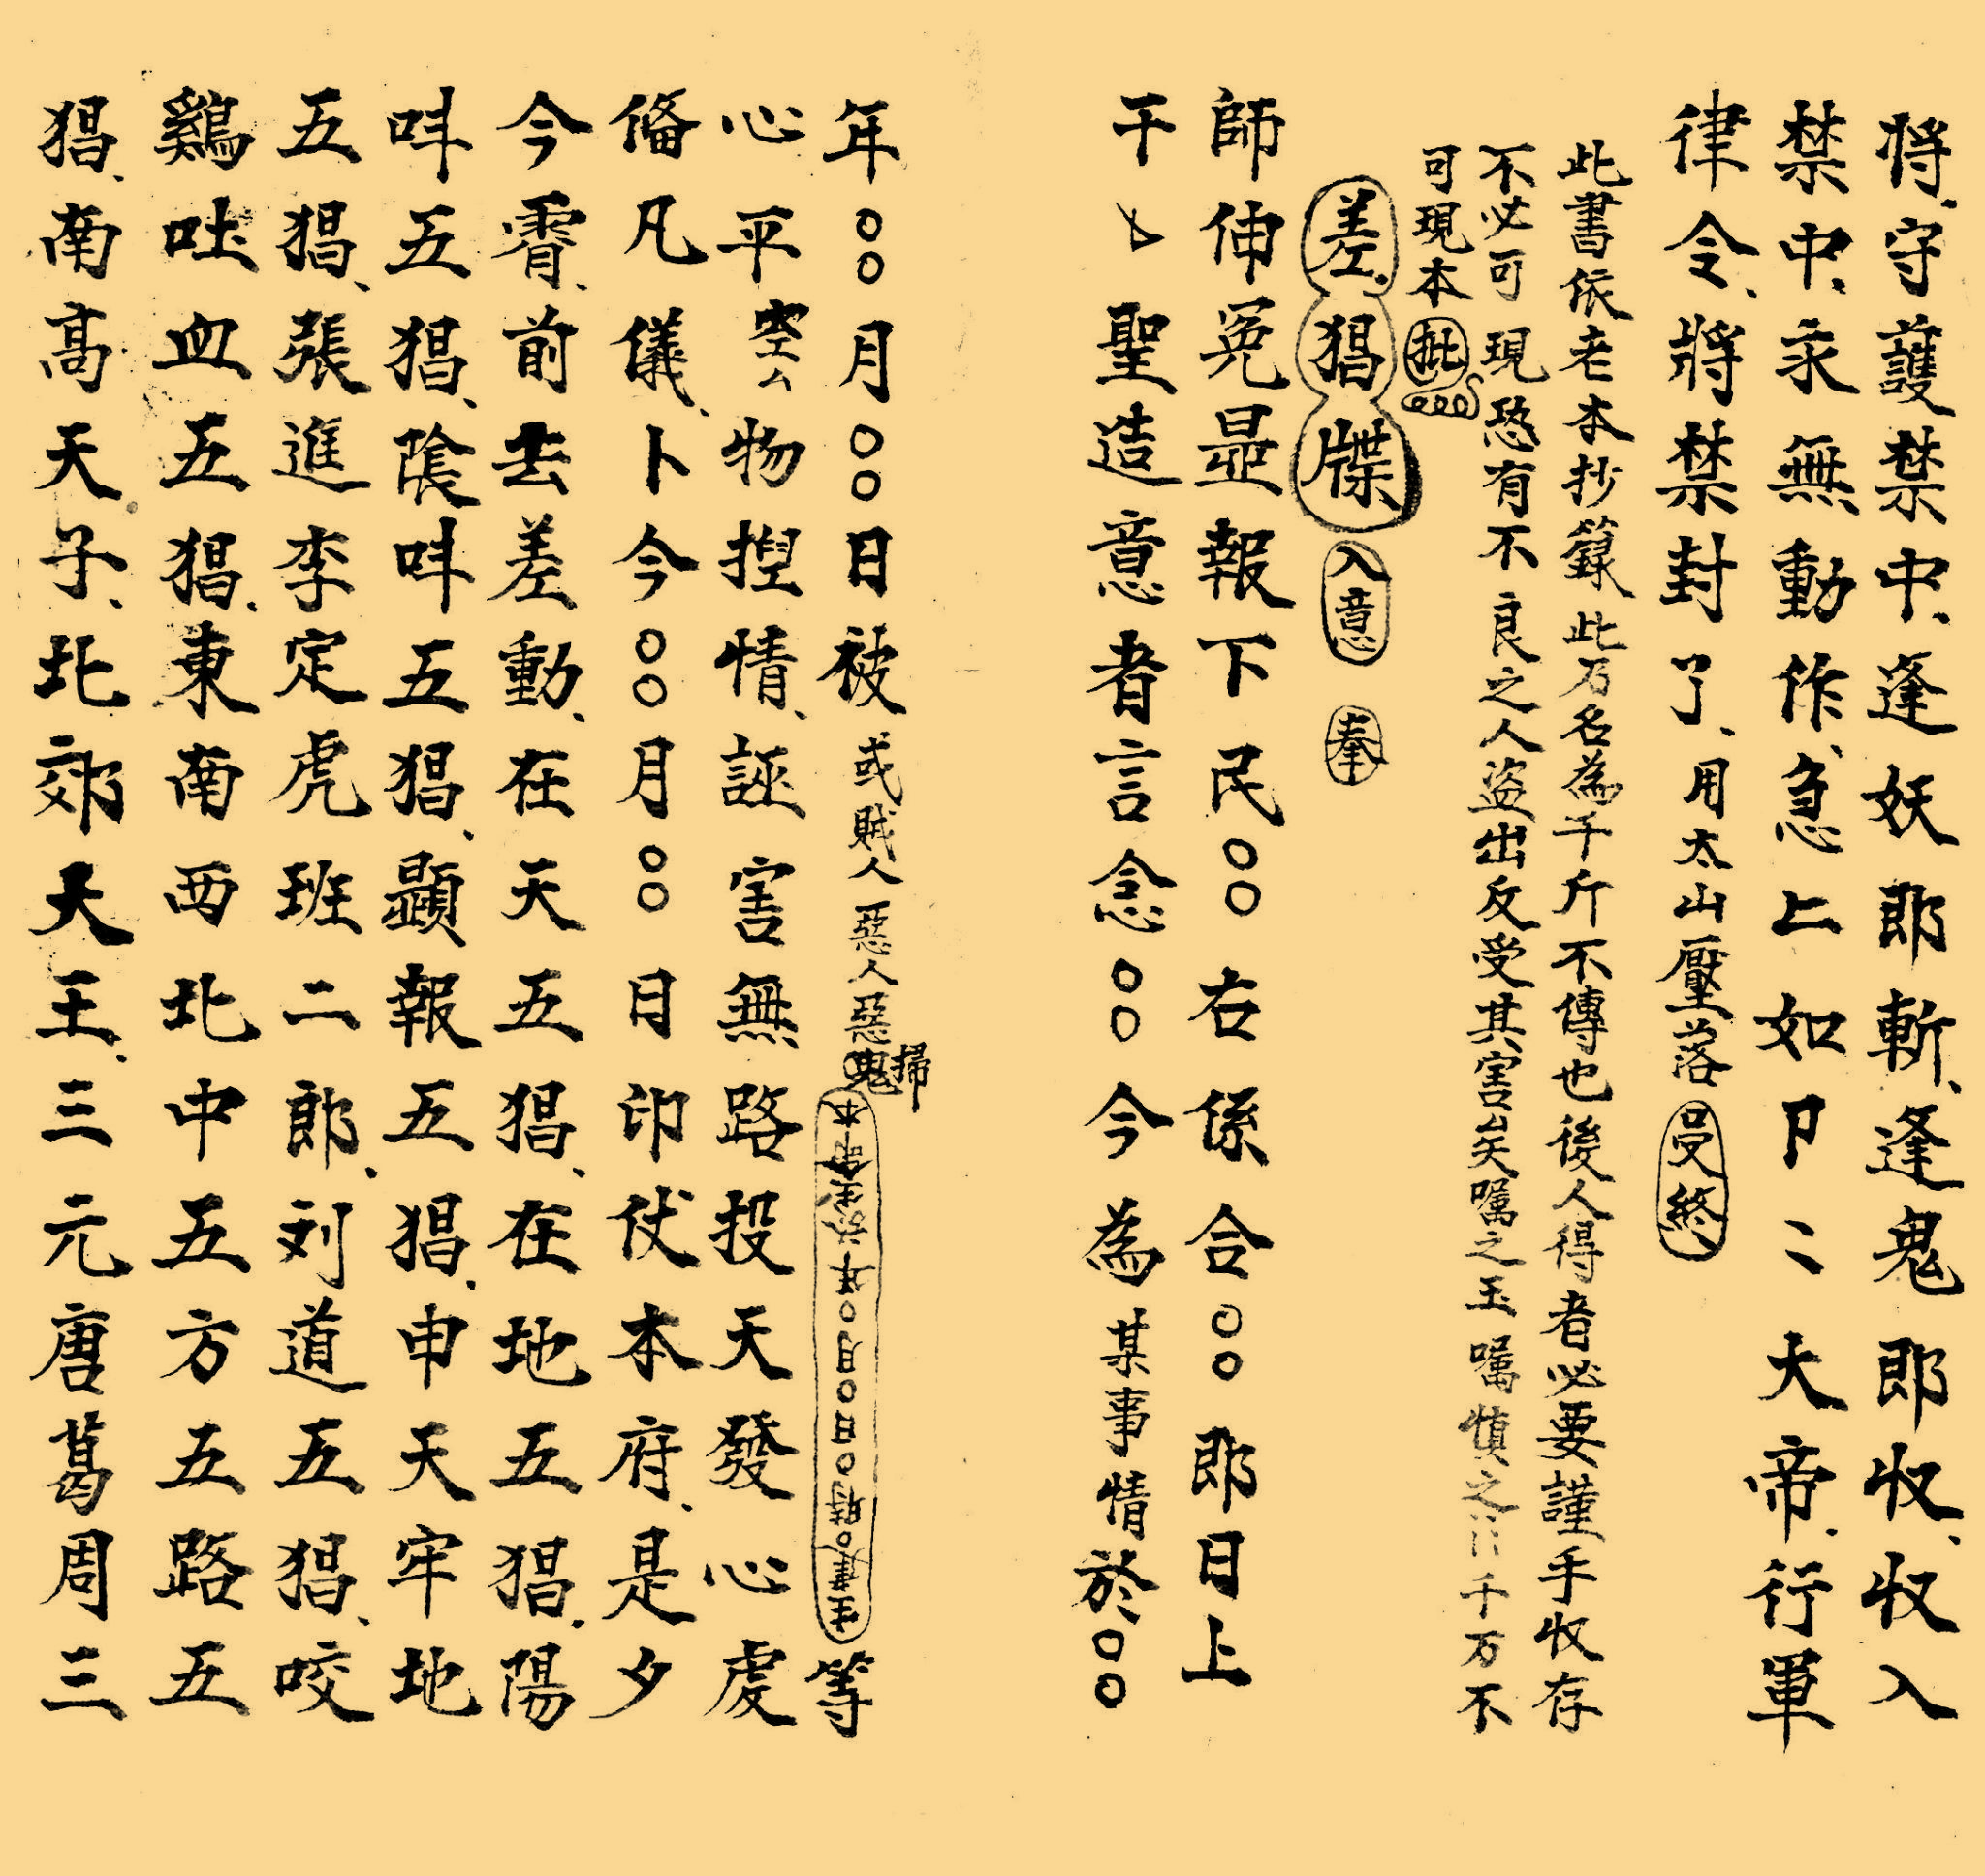 将守護禁中逢妖即斬逢鬼即收收入
禁中永無動作急上如卩〻大帝行軍
律令将禁封了用太山壓落曼終
此書依老本抄籙此万名為千斤不傳也後人得者必要謹手收存
不必可現恐有不良之人盗出反受其害矣嘱之玉嘱慎之〻千万不
可現本批
差猖牒 入意 奉
師伸冤显報下民〇〇右係合〇〇郎日上
干〻聖造意者言念〇〇今為某事情於〇〇
年〇〇月〇〇日被或賊人惡人惡鬼掃
本命生於年〇月〇日〇時〇建生等
心平空么物捏情誣害無路投天發心虔
俻凡儀卜今〇〇月〇〇日卬伏本府是夕
今霄前去差動在天五猖在地五猖陽
呌五猖陰呌五猖顕報五猖申天牢地
五猖張進李定虎班二郎刘道五猖咬
鷄吐血五猖東南西北中五方五路五
猖南髙天子北郊天王三元唐葛周三